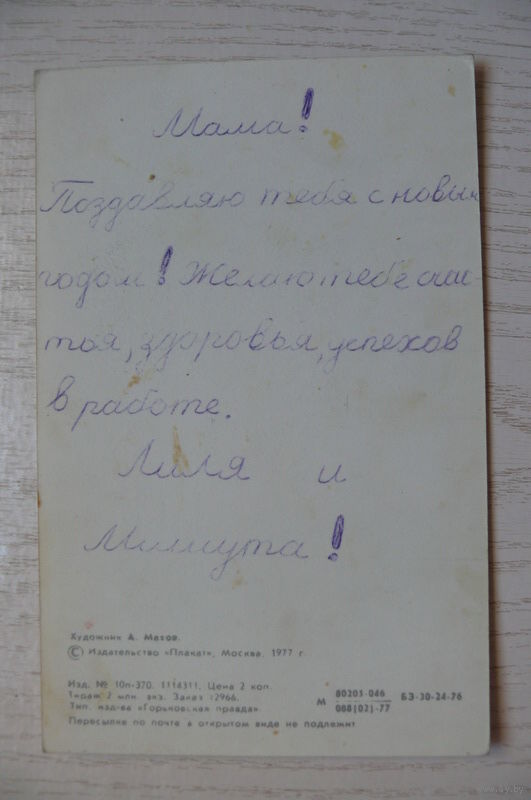 Мама!
Поздавляю тебя с новым
годом! Желаю тебе счас-
тья, здоровья, успехов
в работе.
Лиля и
Мишута!
Художник А. Махов.
© Издательство «Плакат», Москва. 1977 г.
Изд. № 10п-370. 1114311. Цена 2 коп.
Тираж 2 млн. экз. Заказ 2966.
Тип. изд-ва «Горьковская правда».
М 80203-046 БЗ-30-24-76
088(02)-77
Пересылке по почте в открытом виде не подлежит
www.ay.by